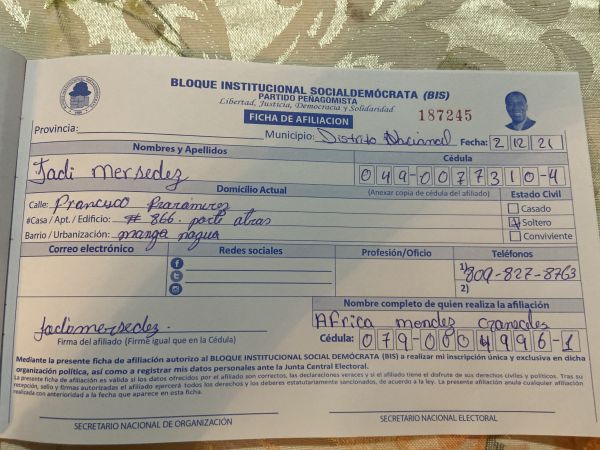 BLOQUE INSTITUCIONAL SOCIALDEMÓCRATA (BIS)
PARTIDO PEÑAGOMISTA
Libertad, Justicia, Democracia y Solidaridad
FICHA DE AFILIACION
187245
Provincia: Municipio: Distrito Nacional Fecha: 2/12/21
Nombres y Apellidos Cédula
Jadi mersedez 049-0077310-4
Domicilio Actual (Anexar copia de cédula del afiliado) Estado Civil
Calle: Francisco
Casado
#Casa / Apt. / Edificio: # 866. parti atras
Soltero
Barrio / Urbanización: manga nagua
Conviviente
Correo electrónico Redes sociales Profesión/Oficio Teléfonos
1) 809-827-8763
2)
Nombre completo de quien realiza la afiliación
Jadi mersedez. Africa mendez
Firma del afiliado (Firme igual que en la Cédula) Cédula: 079-0004996-1
Mediante la presente ficha de afiliación autorizo al BLOQUE INSTITUCIONAL SOCIAL DEMÓCRATA (BIS) a realizar mi inscripción única y exclusiva en dicha
organización política, así como a registrar mis datos personales ante la Junta Central Electoral.
La presente ficha de afiliación es valida si los datos ofrecidos por el afiliado son correctos, las declaraciones veraces y si el afiliado tiene el disfrute de sus derechos civiles y políticos. Tras su
recepción, sello y firmas autorizadas el afiliado ejercerá todos los derechos y los deberes estatutariamente sancionados, de acuerdo a la ley. La presente afiliación anula cualquier afiliación
realizada con anterioridad a la fecha que aparece en esta ficha.
SECRETARIO NACIONAL DE ORGANIZACIÓN SECRETARIO NACIONAL ELECTORAL